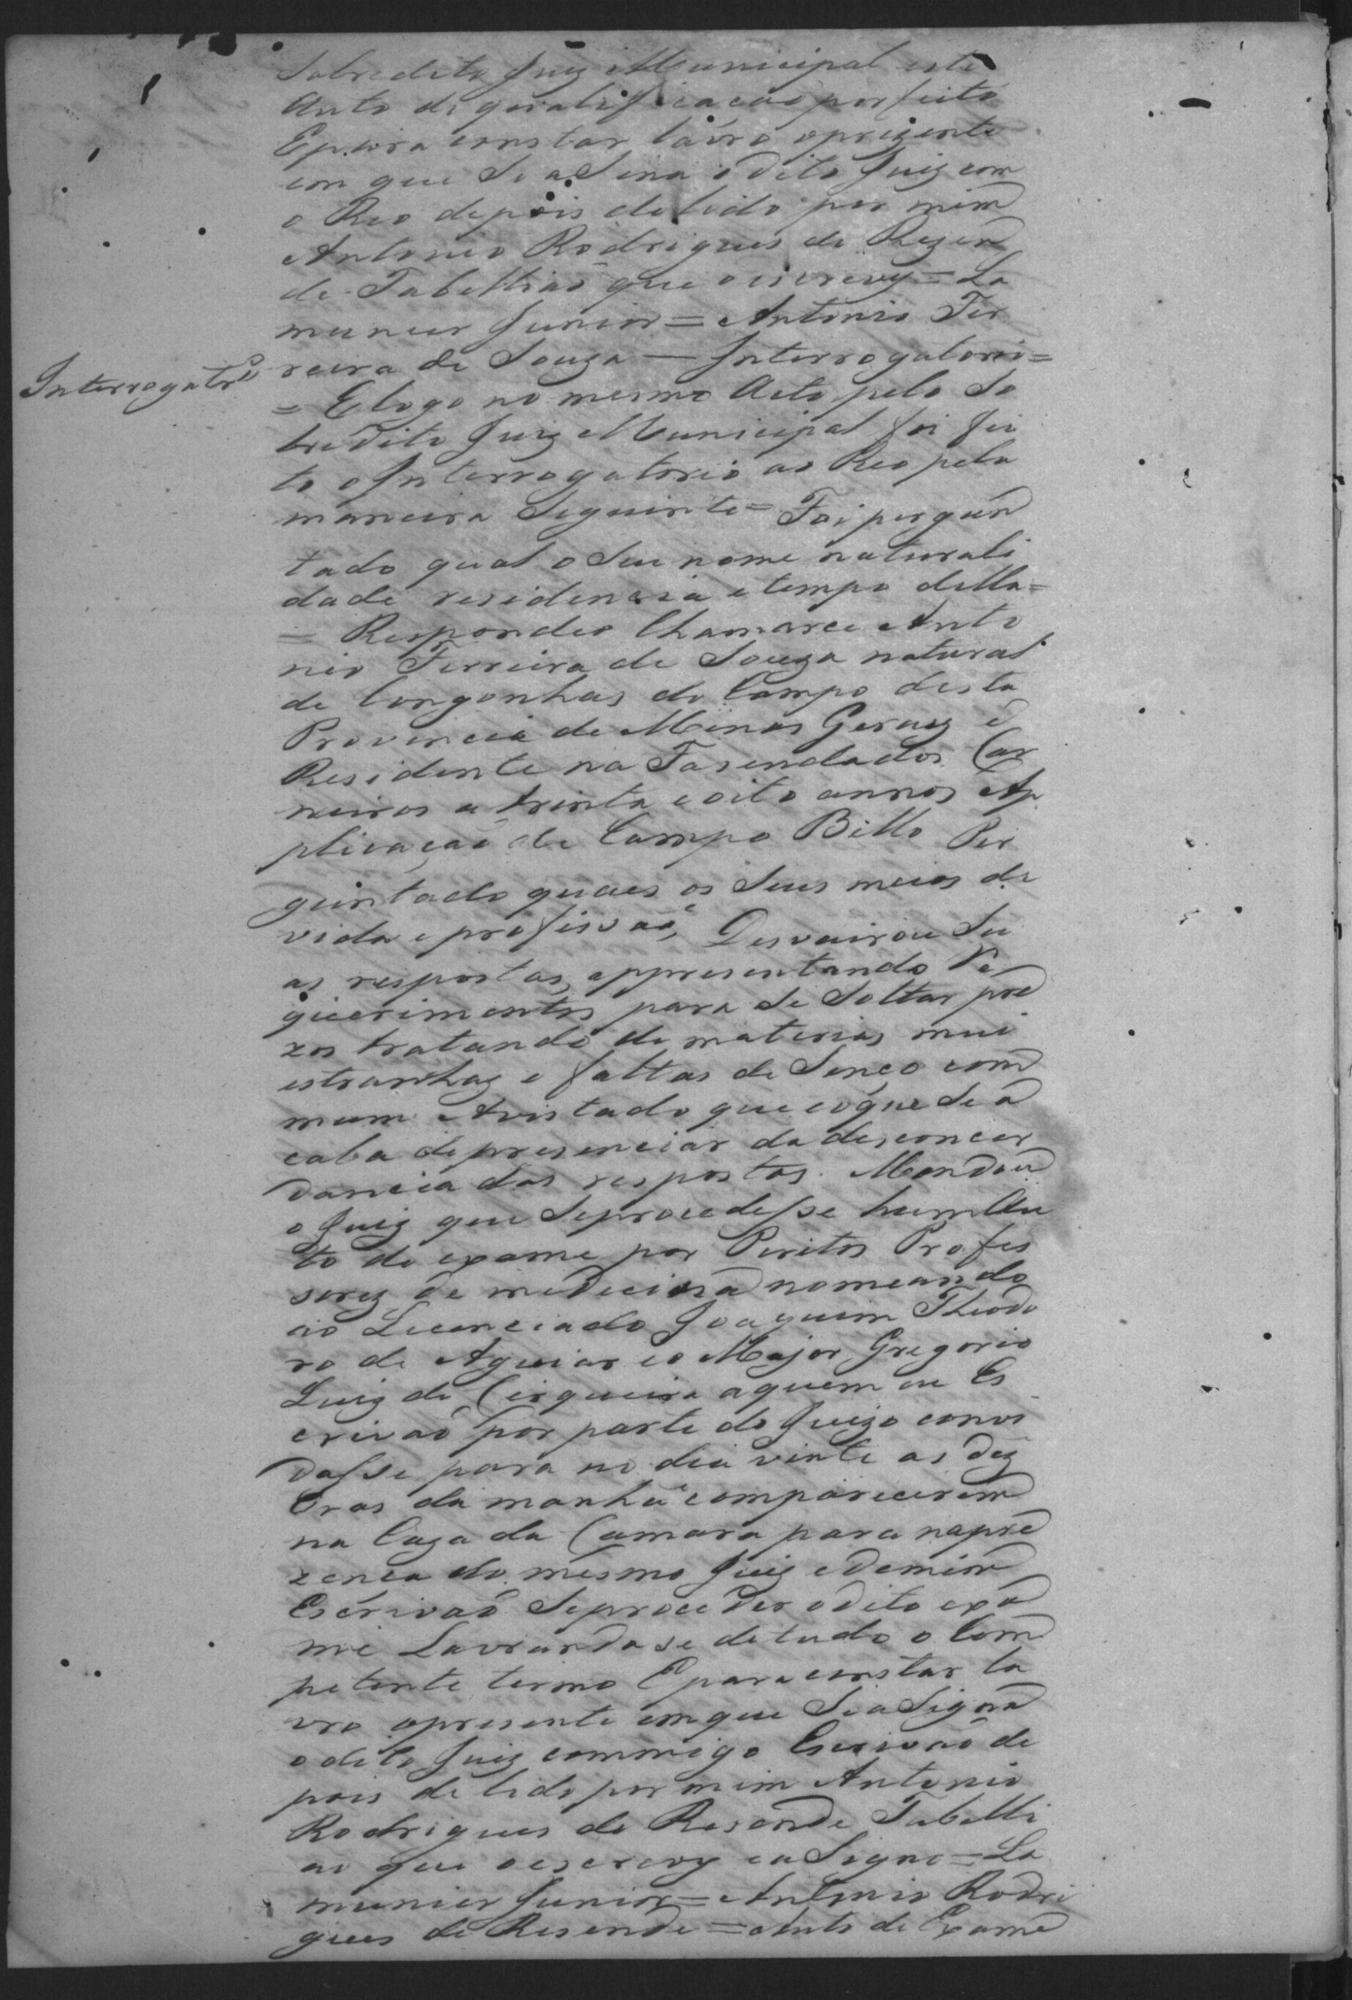 Sobredito Juiz Municipal este
Auto de qualificacaõ por feito
E para constar lavro o prizente
em que Se aSina o dito Juiz com
o Reo depois de lido por mim
Antonio Rodrigues de Rezen
de Tabelliaõ que o escrevy = La
munier Junior = Antonio Fer
reira de Souza — Interrogatori=
Interrogatr.º
= E logo no mesmo Acto pelo So
bredito Juiz Municipal foi fei
to o Interrogatorio ao Reo pela
maneira Seguinte = Foi pergun
tado qual o Seu nome naturali
dade residencia e tempo della =
= Respondeo Chamarce Anto
nio Ferreira de Souza natural
de Congonhas do Campo desta
Provincia de Minas Geraiz é
Residente na Fasenda dos Car
neiros a trinta e oito annos Ap
plicaçaõ de Campo Bello Per
guntado quaes os Seus meios de
vida e profisvaõ, Desvairou Su
as respostas, appresentando Re
querimentos para Se Soltar pre
zos tratando de materias mui
estranhaz e faltas de Senço com
mum Avistado que e o que Se a
caba de presenciar da desconcor
dancia das respostas. Mandou
o Juiz que Seprocedesse hum Au
to de exame por Peritos Profes
sorez de medecina nomeando
ao Licenciado Joaquim Theodo
ro de Aguiar e o Major Gregorio
Luiz de Cirqueira aquem eu Es
crivaõ por parte do Juizo convi
dasse para no dia vinte as dez
Oras da manhã comparecerem
na Caza da Camara para napre
zenca do mesmo Juiz e demim
Escrivaõ Seproceder o dito exa
me Lavrandose de tudo o Com
petente termo E para constar la
vro o presente em que Se aSigna
o dito Juiz commigo Escrivaõ de
pois de lido por mim Antonio
Rodrigues de Resende Tabelli
aõ que o escrevy e aSigno = La
munier Junior = Antonio Rodri
gues de Resende = Auto de Exame